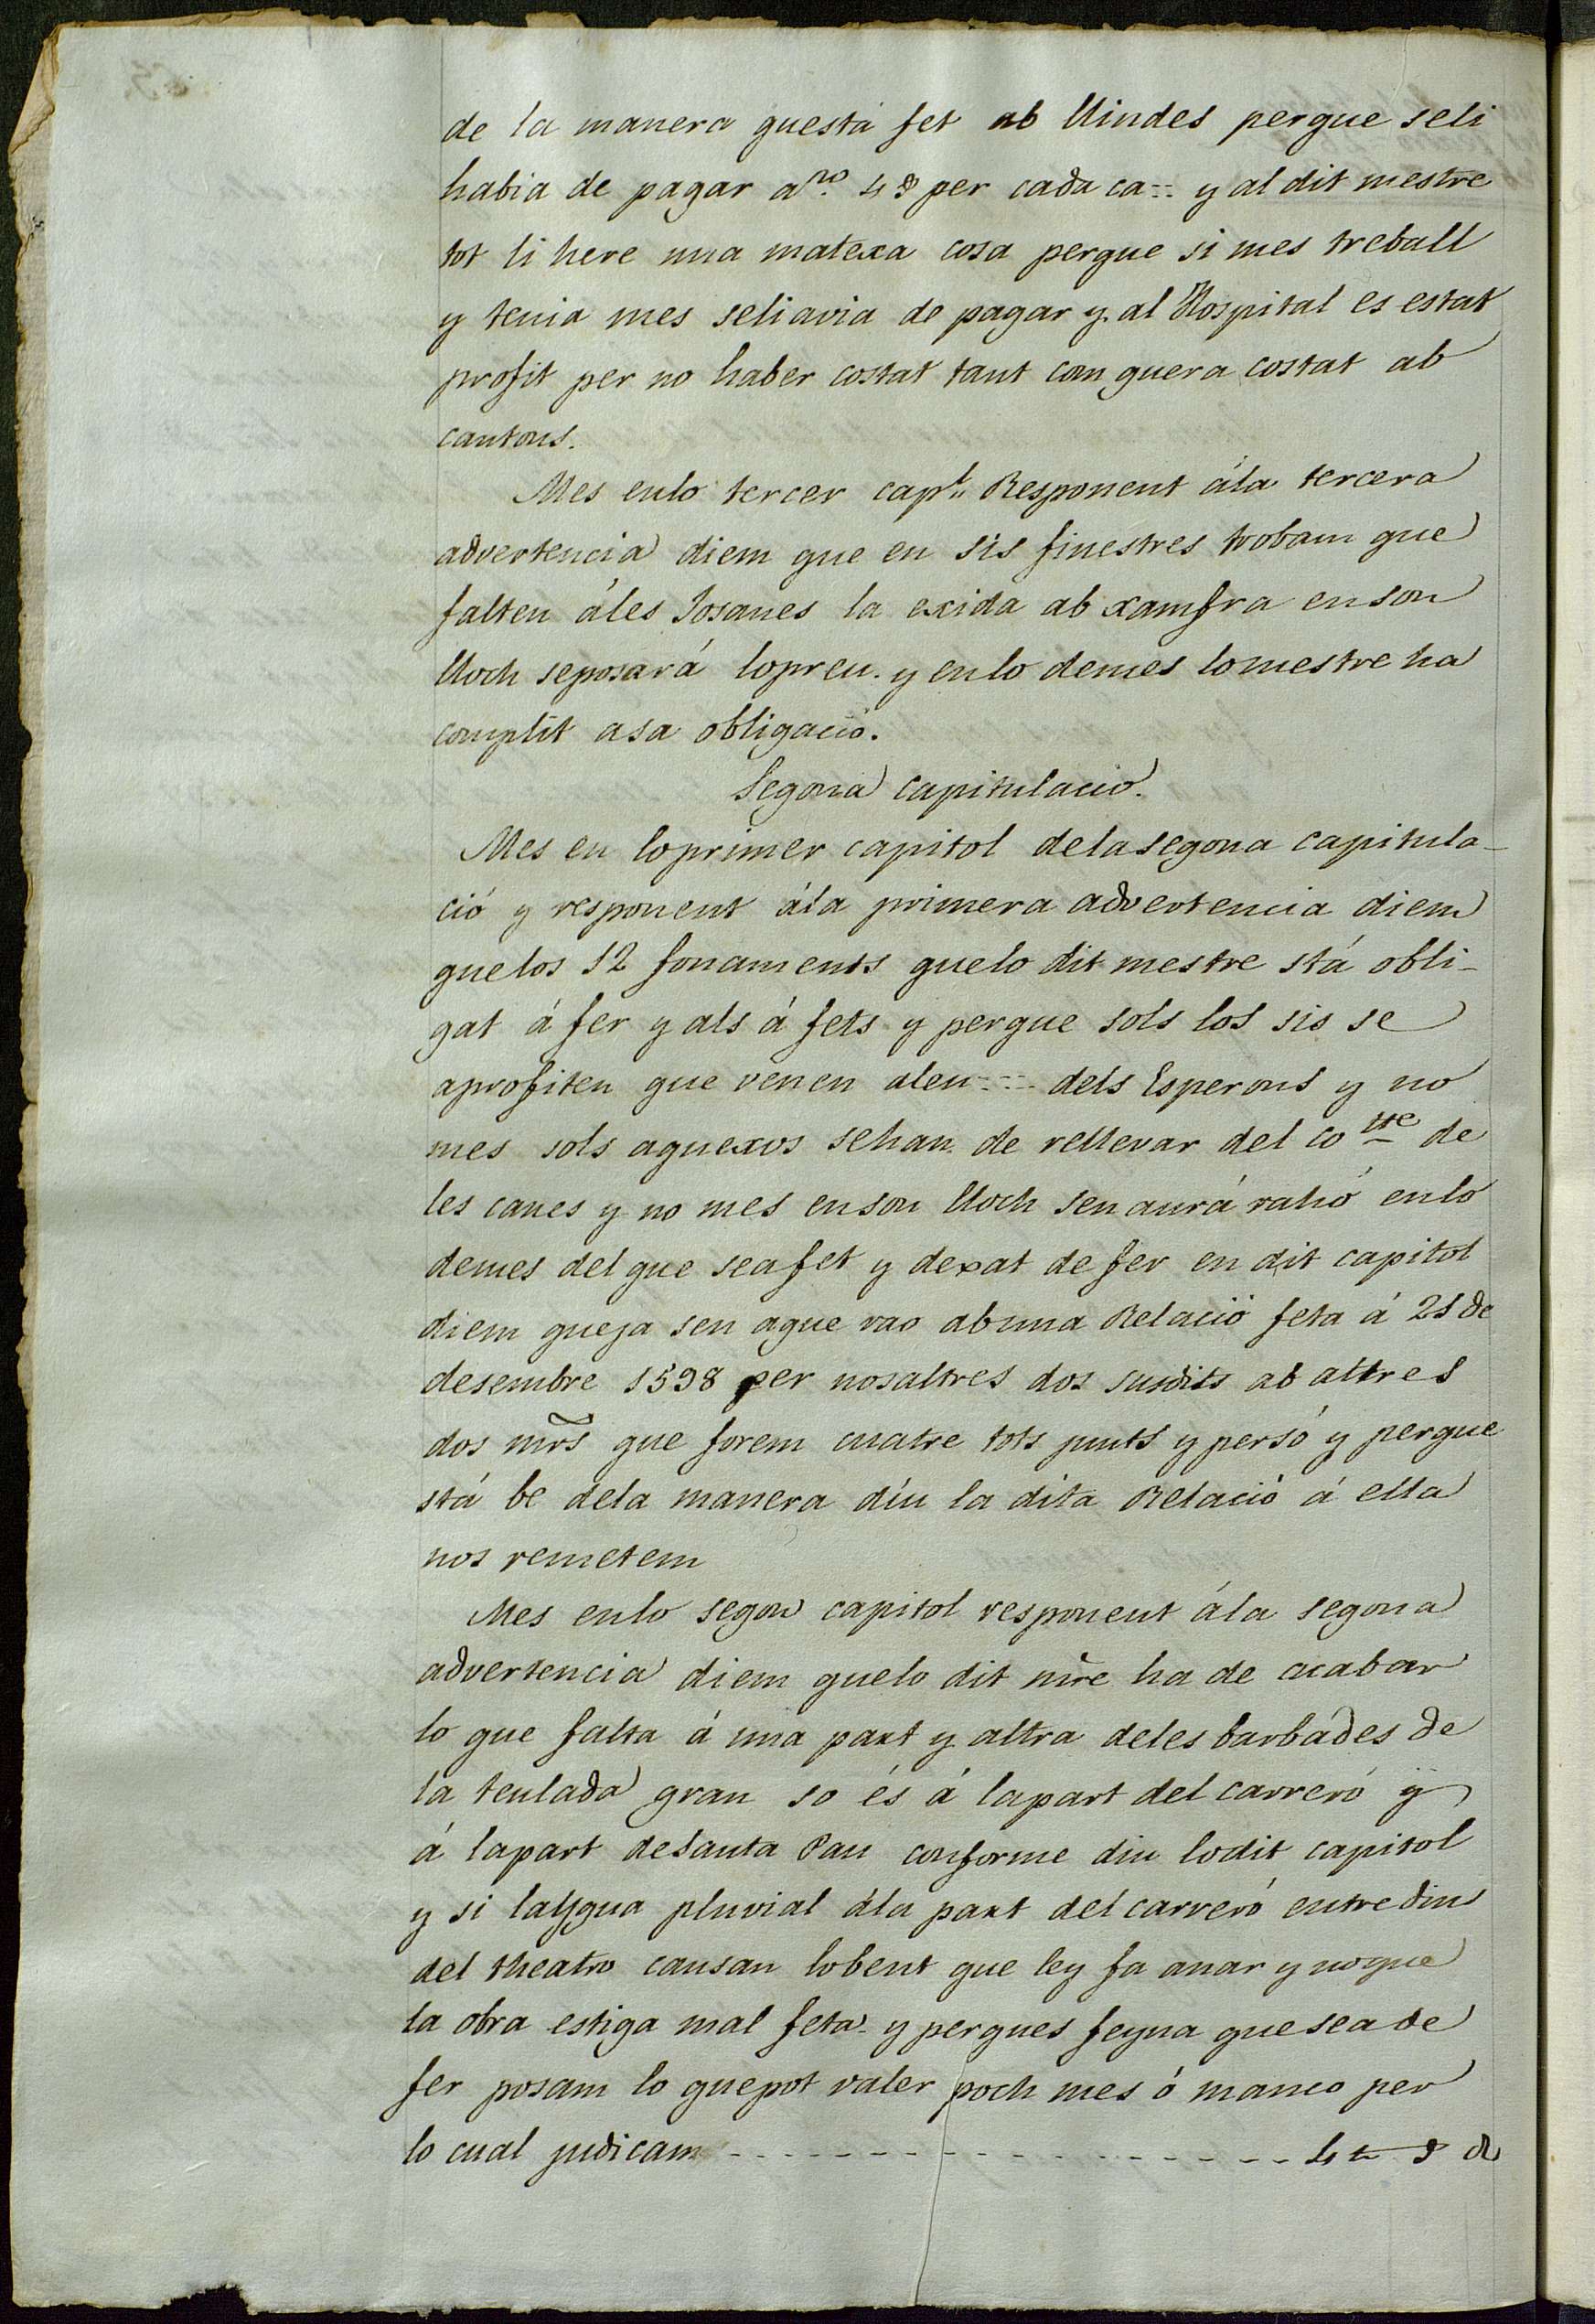 de la manera questá fet ab llindes perque seli
habia de pagar a ro. 4 s per cada ca-:- y al dit mestre
tot li here una matexa cosa perque si mes treball
y tenia mes seliavia de pagar y al Hospital es estat
profit per no haber costat tant com quera costat ab
cantons.
Mes enlo tercer capl.. Responent ála tercera
advertencia diem que en sis finestres trobam que
falten áles Josanes la exida ab xamfra enson
lloch seposará lopreu. y enlo demes lomestre ha
complit asa obligació.
Segona capitulació.
Mes en loprimer capitol delasegona capitula-
ció y responent ála primera advertencia diem
quelos 12 fonaments quelo dit mestre stá obli-
gat á fer y als á fets y perque sols los sis se
aprofiten que venen aleu-:-:- dels Esperons y no
mes sols aquexos sehan de rellevar del co te de
les canes y no mes enson lloch sen aurá rahó enlo
demes del que seafet y dexat de fer en dit capitol
diem queja sen ague rao abuna Relació feta á 21 de
desembre 1598 per nosaltres dos susdits ab altres
dos mrs que forem cuatre tots junts y persó y perque
stá be dela manera díu la dita Relació á ella
nos remetem
Mes enlo segon capitol responent ála segona
advertencia diem quelo dit mre ha de acabar
lo que falta á una part y altra deles barbades de
la teulada gran so és á lapart del carreró y
á lapart desanta Pau conforme diu lodit capitol
y si la gua pluvial ála part del carreró entredins
del theatro causan lobent que ley fa anar y noque
la obra estiga mal feta y perques feyna quesea de
fer posam lo quepot valer poch mes ó manco per
lo cual judicam - - - - - - - - - - - - - - - - 4 tt s d